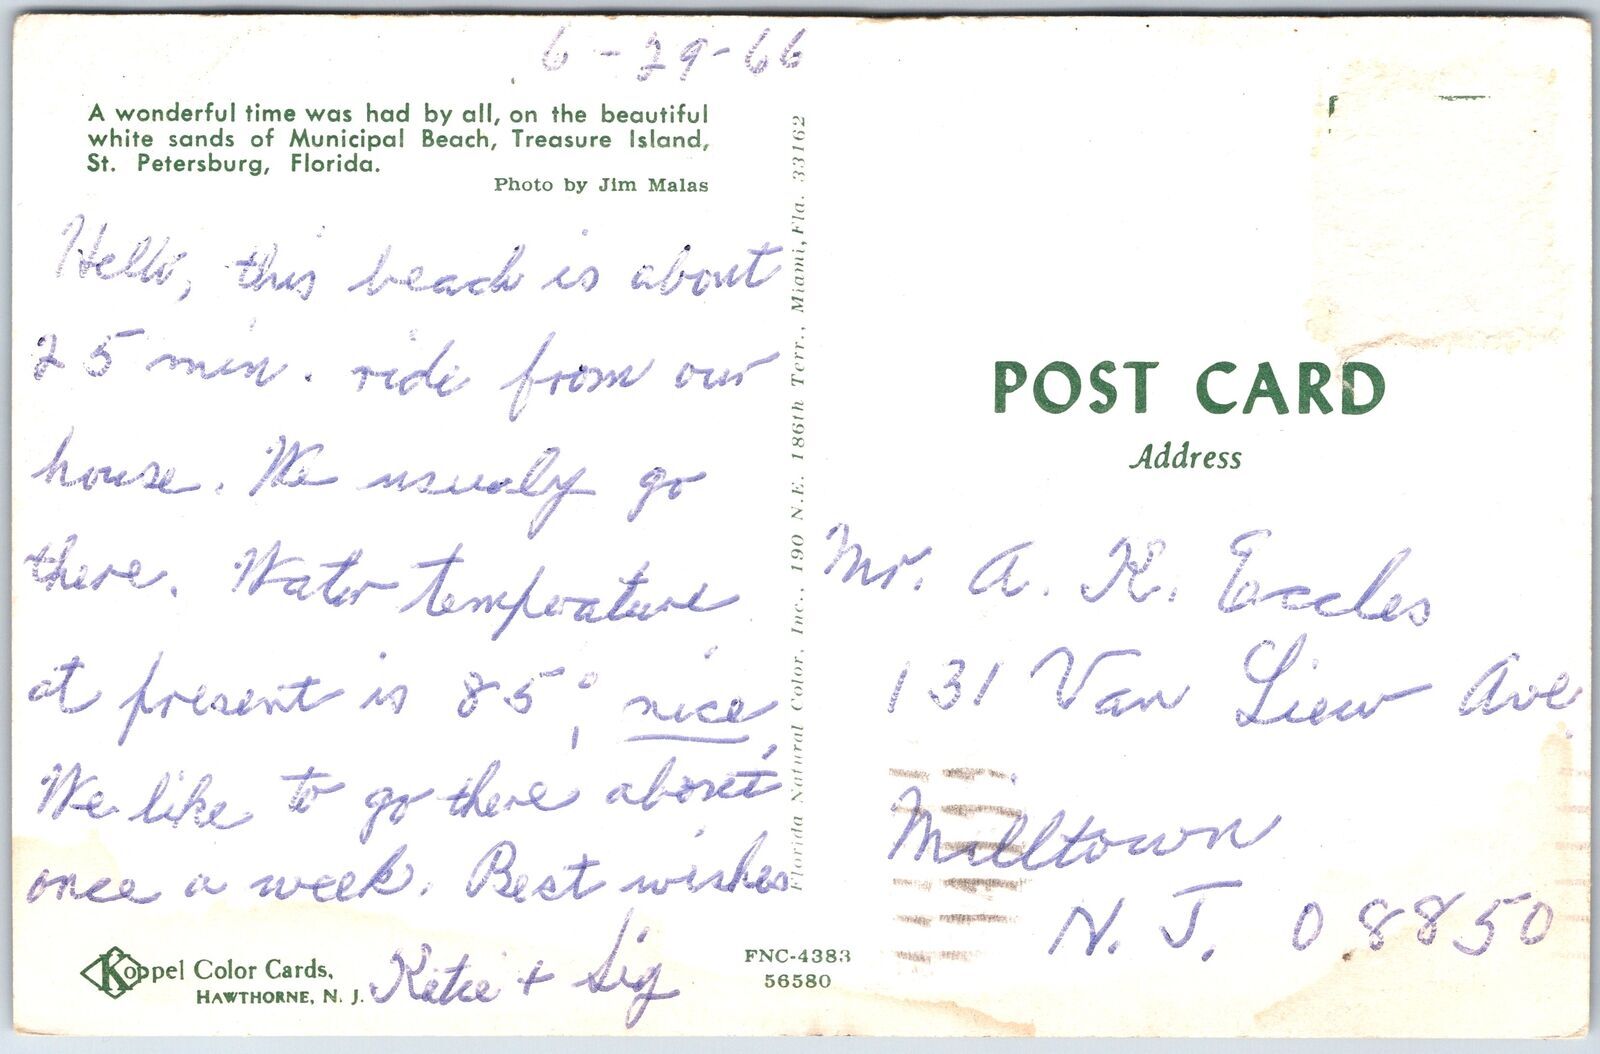 6-29-66
A wonderful time was had by all, on the beautiful
white sands of Municipal Beach, Treasure Island,
St. Petersburg, Florida.
Photo by Jim Malas
Hello, this beach is about
25 min. ride from our
house. We usualy go
there. Water temperature
at present is 85°, nice
We like to go there about
once a week. Best wishes
Katie + Sig
Koppel Color Cards,
HAWTHORNE, N. J.
Florida Natural Color, Inc., 190 N.E. 186th Terr., Miami, Fla. 33162
FNC-4383
56580
POST CARD
Address
Mr. A. K. Eccles
131 Van Liew Ave.
Milltown
N. J. 08850